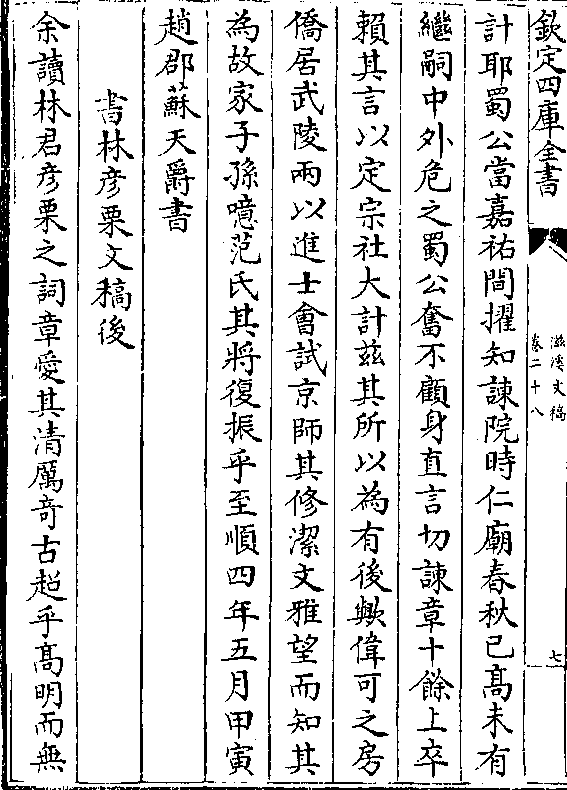 欽定四庫全書
滋溪文稿
卷二十八
七
計耶蜀公當嘉祐間擢知諫院時仁廟春秋已髙未有
繼嗣中外危之蜀公奮不顧身直言切諫章十餘上卒
賴其言以定宗社大計兹其所以為有後歟偉可之房
僑居武陵兩以進士會試京師其修潔文雅望而知其
為故家子孫噫范氏其將復振乎至順四年五月甲寅
趙郡蘇天爵書
書林彦栗文稿後
余讀林君彦栗之詞章愛其清厲竒古超乎髙明而無